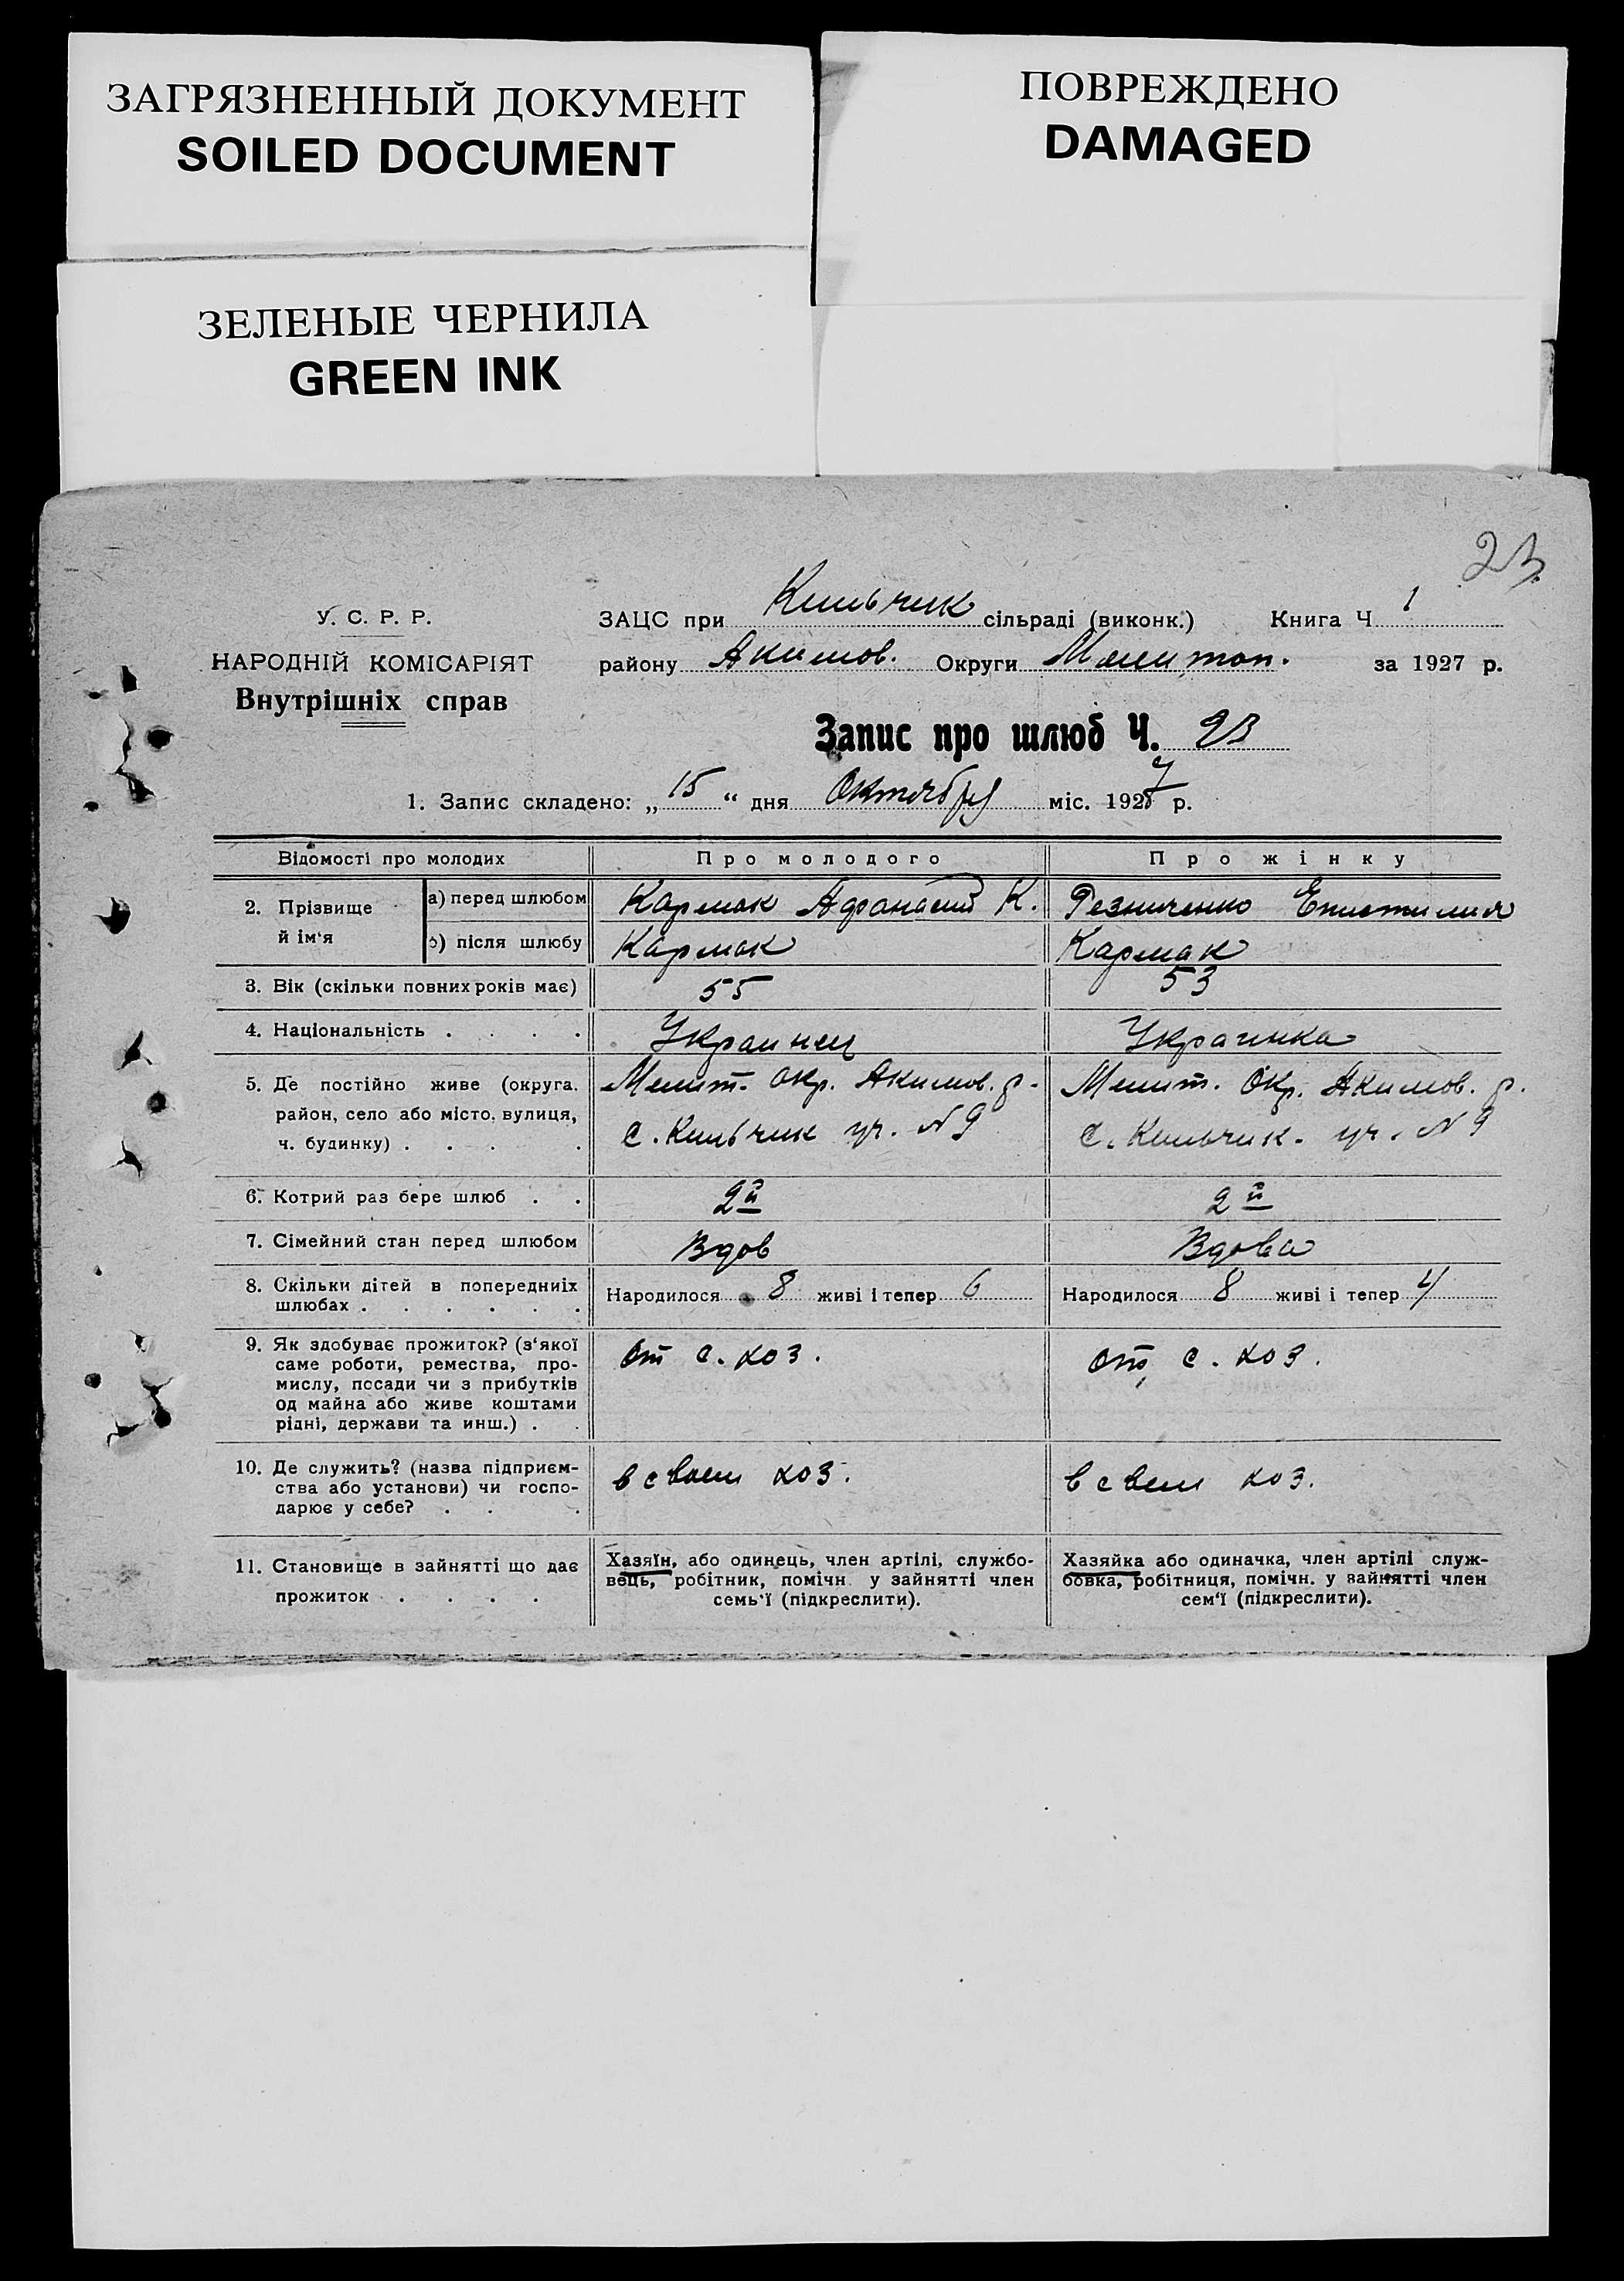 ЗАГРЯЗНЕННЫЙ ДОКУМЕНТ
SOILED DOCUMENT
ПОВРЕЖДЕНО
DAMAGED
ЗЕЛЕНЫЕ ЧЕРНИЛА
GREEN INK
23
У. С. Р. Р.
НАРОДНІЙ КОМІСАРІЯТ
Внутрішніх справ
ЗАЦС при Кильчик сільраді (виконк.) Книга Ч 1
району Акимов. Округи Мелитоп. за 1927 р.
Запис про шлюб Ч. 23
1. Запис складено: „ 15 “ дня Октября міс. 1927 р.
Відомості про молодих Про молодого Про жінку
2. Прізвище й ім‘я а) перед шлюбом Кармак Афанасий К. Резниченко Епистимия
б) після шлюбу Кармак Кармак
3. Вік (скільки повних років має) 55 53
4. Національність . . . . Украинец Украинка
5. Де постійно живе (округа. Мелит. окр. Акимов. р. Мелит. Окр. Акимов. р.
район, село або місто, вулиця, с. Кильчик уч. N 9 с. Кильчик. уч. N 9
ч. будинку) . . . .
6. Котрий раз бере шлюб . . 2й 2й
7. Сімейний стан перед шлюбом Вдов Вдова
8. Скільки дітей в попередниіх шлюбах . . . . . . Народилося 8 живі і тепер 6 Народилося 8 живі і тепер 4
9. Як здобуває прожиток? (з‘якої От с. хоз. От с. хоз.
саме роботи, ремества, про-
мислу, посади чи з прибутків
од майна або живе коштами
рідні, держави та инш.) . .
10. Де служить? (назва підприєм- в своем хоз. в свем хоз.
ства або установи) чи госпо-
дарює у себе? . . .
11. Становище в зайнятті що дає прожиток . . . .
Хазяїн, або одинець, член артілі, службо-
вець, робітник, помічн. у зайнятті член
семь‘ї (підкреслити).
Хазяйка або одиначка, член артілі служ-
бовка, робітниця, помічн. у зайнятті член
сем‘ї (підкреслити).